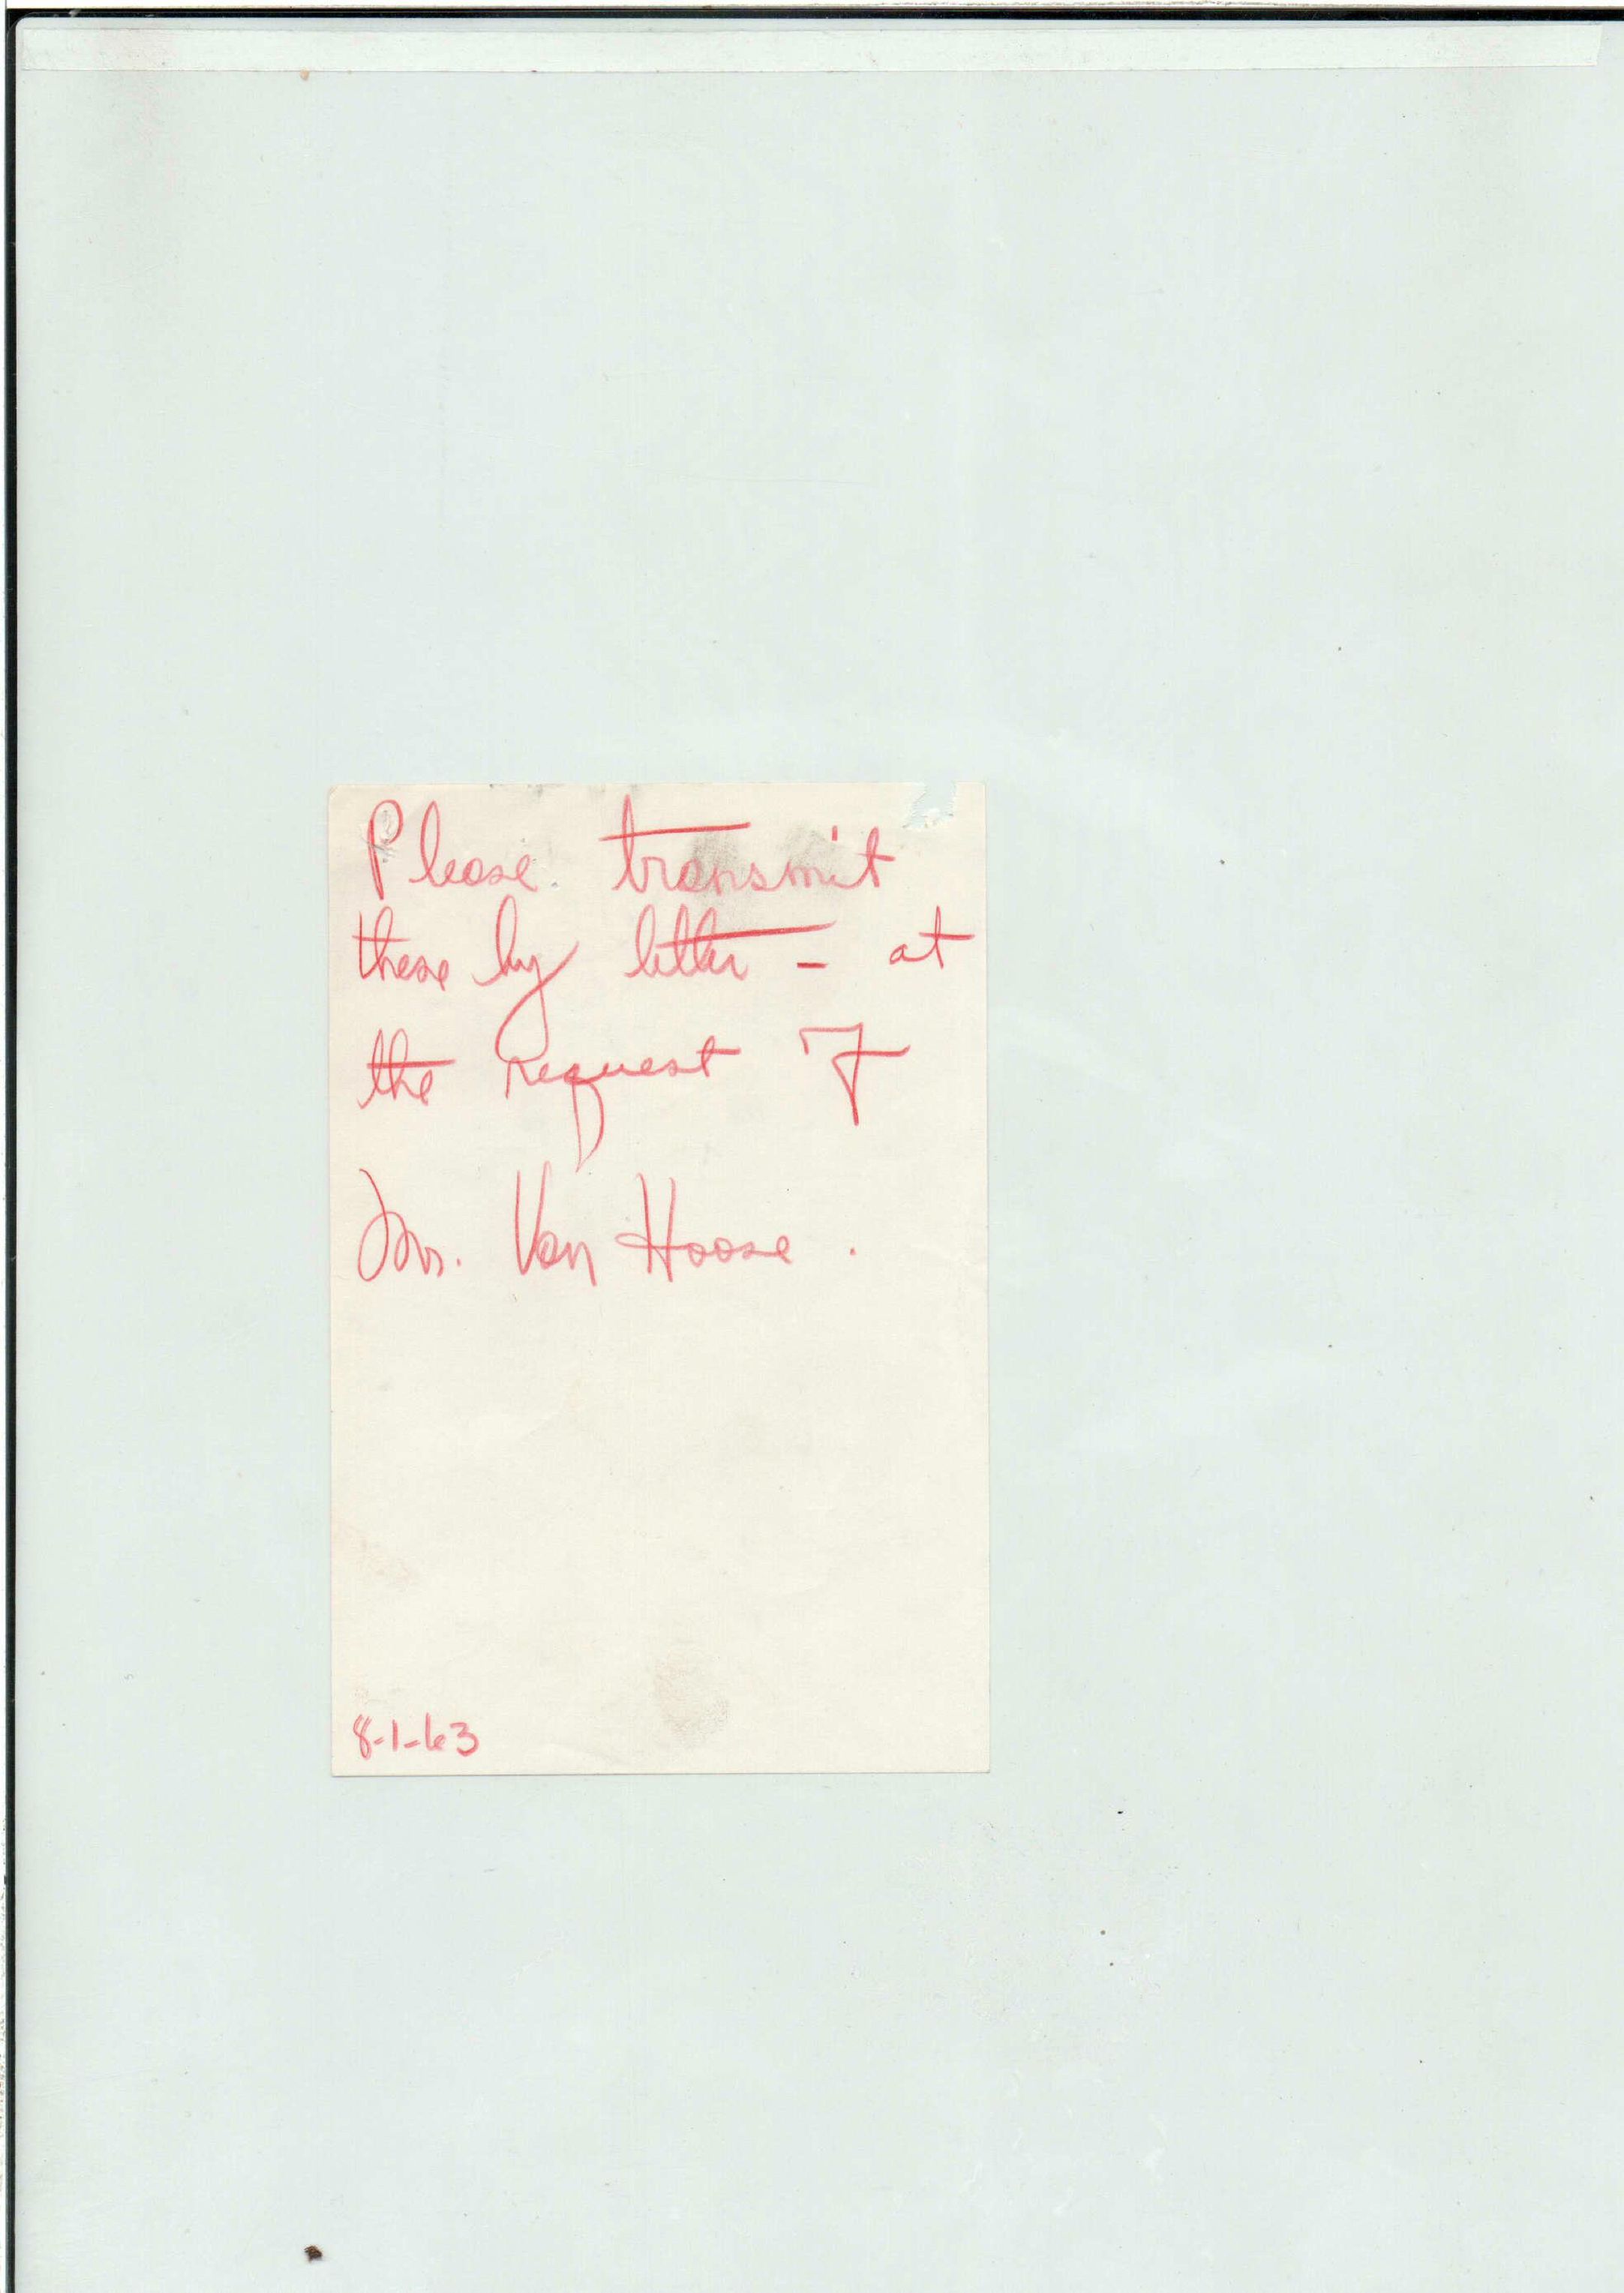 Please transmit
these by letter - at
the request of
Mr. Van Hoose.
8-1-63